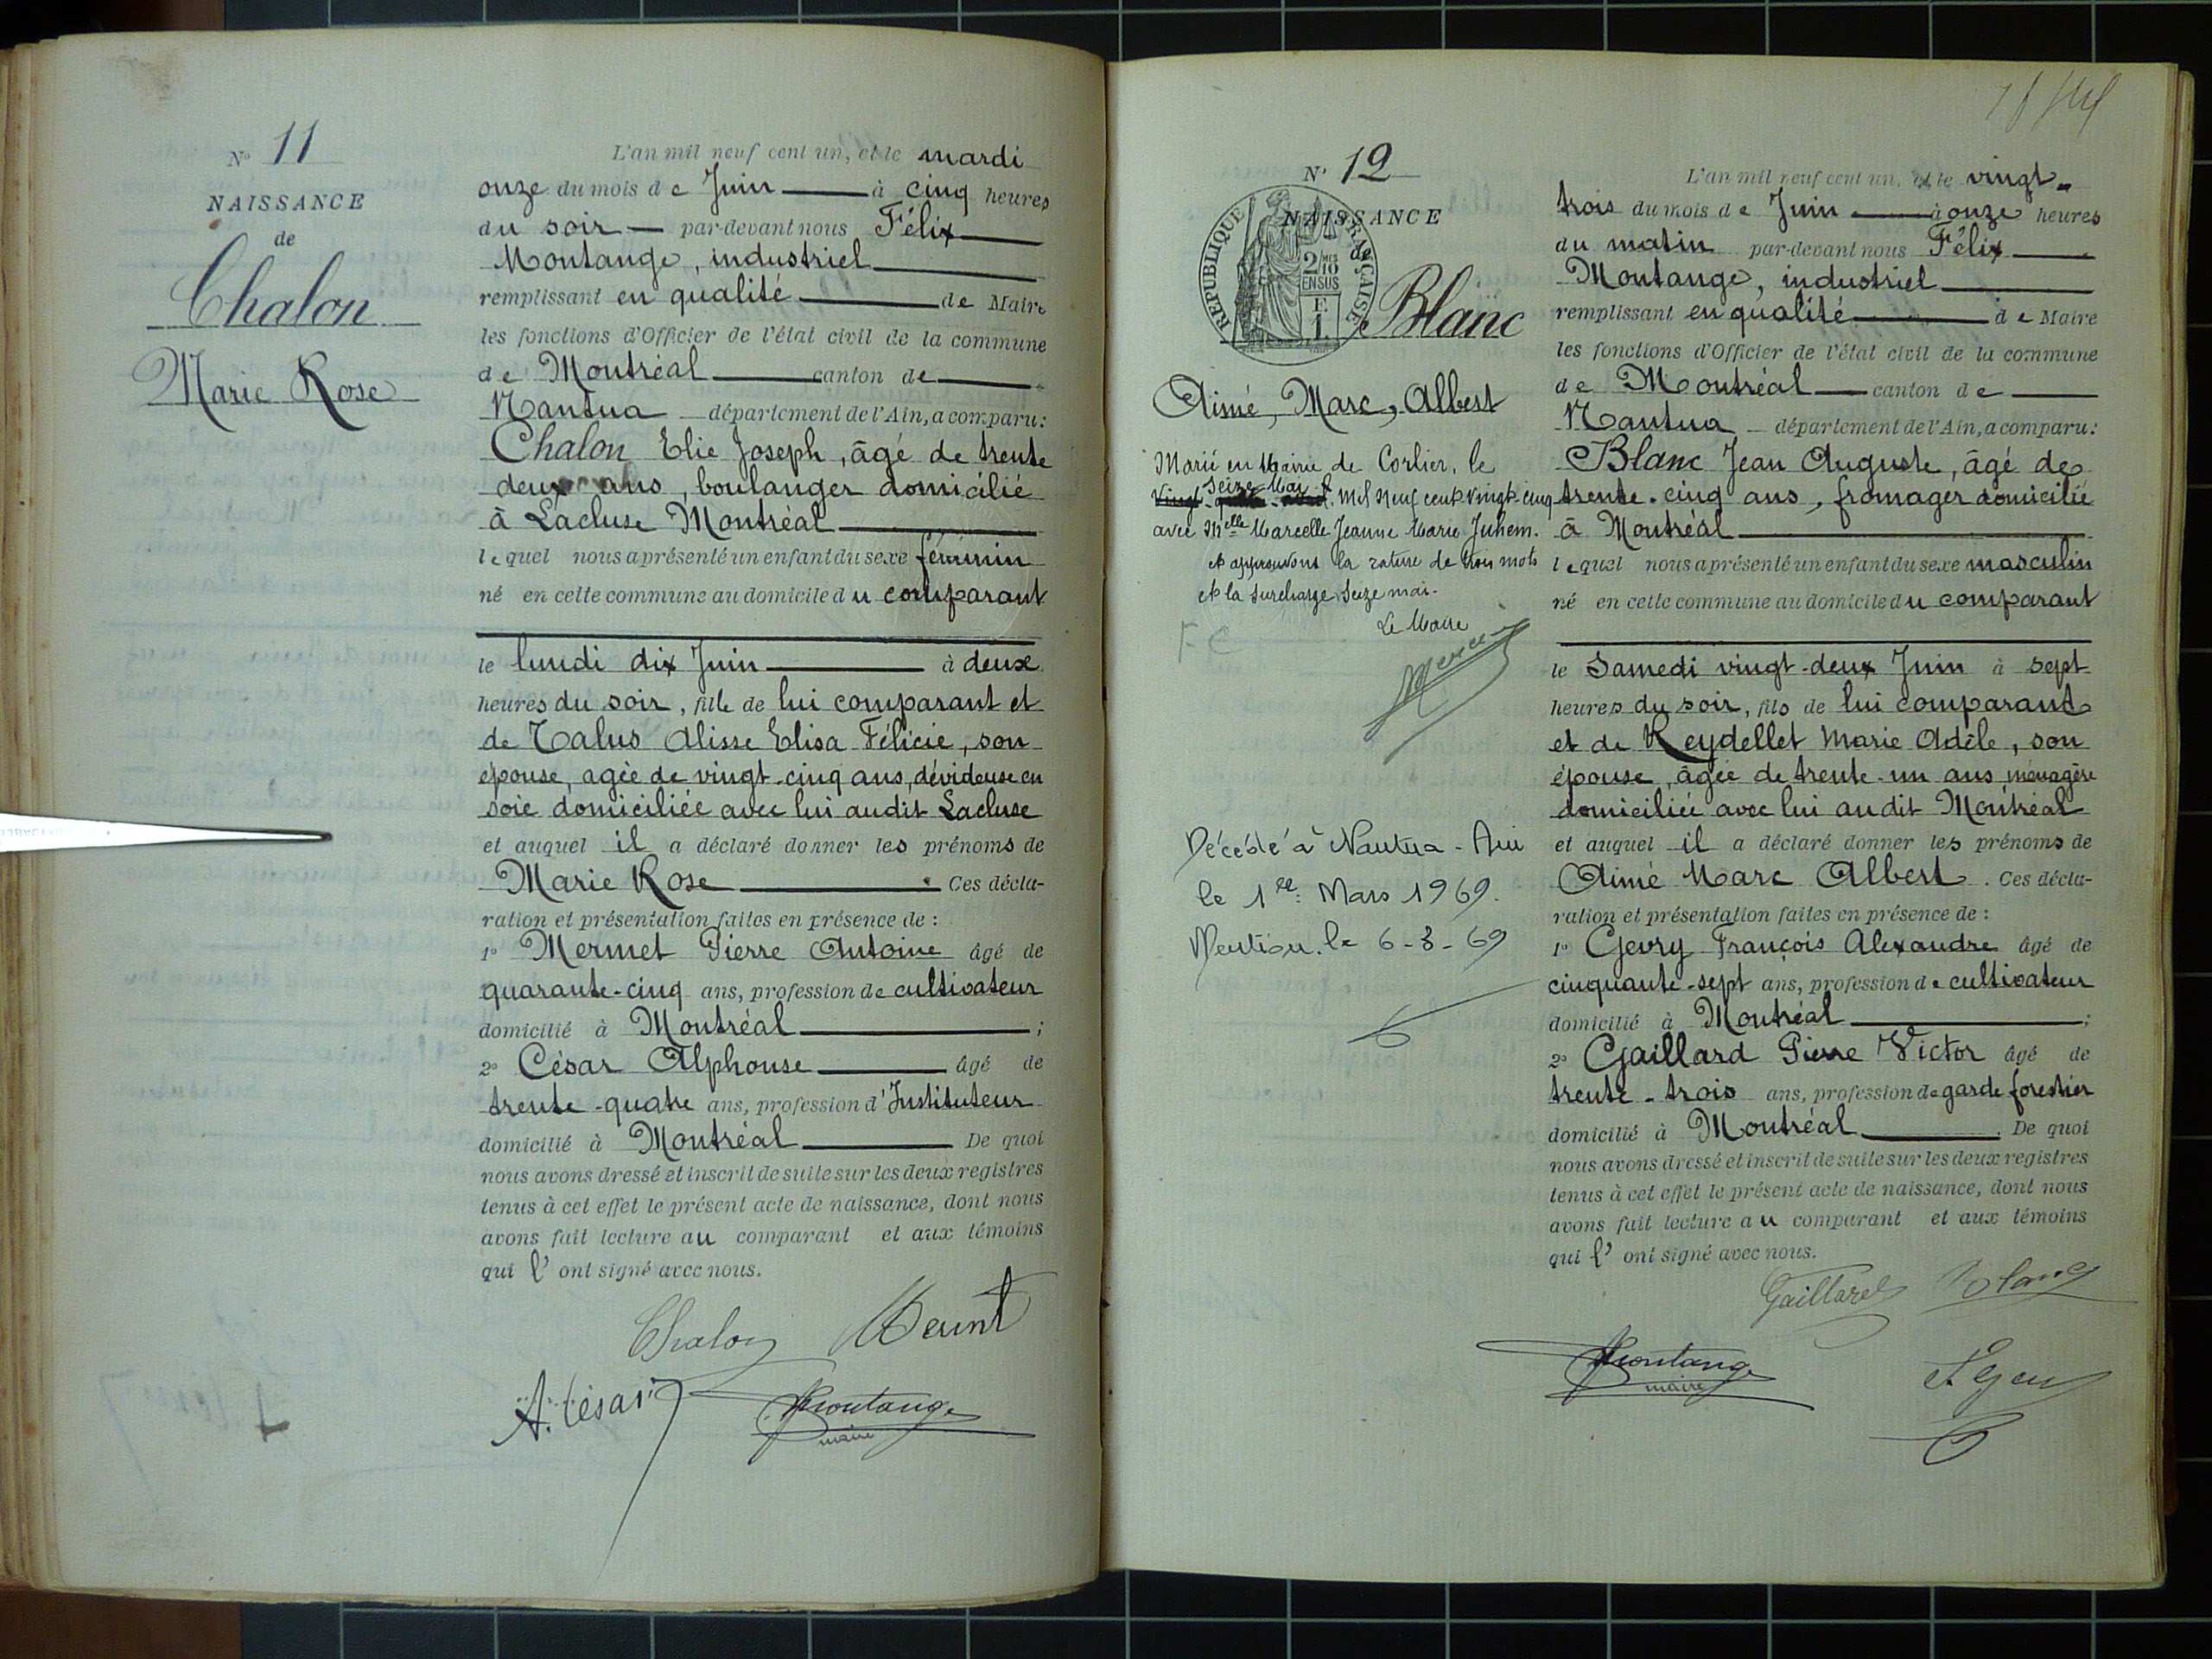 N° 11
NAISSANCE
de
Chalon
Marie Rose
L'an mil neuf cent un, et le mardi
onze du mois de Juin à cinq heures
du soir — par-devant nous Félix
Montange, industriel
remplissant en qualité de Maire
les fonctions d'Officier de l'état civil de la commune
de Montréal canton de
Nantua département de l'Ain, a comparu :
Chalon Elie Joseph, âgé de trente
deux ans, boulanger domicilié
à Lacluse Montréal
lequel nous a présenté un enfant du sexe féminin
né en cette commune au domicile du comparant
le lundi dix Juin à deux
heures du soir, fille de lui comparant et
de Talus Alisse Elisa Félicie, son
épouse, agée de vingt-cinq ans, dévideuse en
soie domiciliée avec lui audit Lacluse
et auquel il a déclaré donner les prénoms de
Marie Rose . Ces décla-
ration et présentation faites en présence de :
1° Mermet Pierre Antoine âgé de
quarante-cinq ans, profession de cultivateur
domicilié à Montréal ;
2° César Alphonse âgé de
trente-quatre ans, profession d'Instituteur
domicilié à Montréal De quoi
nous avons dressé et inscrit de suite sur les deux registres
tenus à cet effet le présent acte de naissance, dont nous
avons fait lecture au comparant et aux témoins
qui l' ont signé avec nous.
Chalon Mermet
A. César Montange
maire
N° 12
NAISSANCE
de
REPUBLIQUE FRANCAISE
2/10 EN SUS
E
1
Blanc
Aimé, Marc, Albert
Marié en Mairie de Corlier, le
Seize Mai
Vingt mil neuf cent vingt-cinq
avec Melle Marcelle Jeanne Marie Juhem.
et approuvons la rature de trois mots
et la surcharge Seize mai.
Le Maire
FC
Décédé à Nantua - Ain
le 1er Mars 1969.
Mention le 6-3-69
L'an mil neuf cent un, et le vingt-
trois du mois de Juin à onze heures
du matin par-devant nous Félix
Montange, industriel
remplissant en qualité de Maire
les fonctions d'Officier de l'état civil de la commune
de Montréal canton de
Nantua département de l'Ain, a comparu :
Blanc Jean Auguste, âgé de
trente-cinq ans, fromager domicilié
à Montréal
lequel nous a présenté un enfant du sexe masculin
né en cette commune au domicile du comparant
le Samedi vingt-deux Juin à sept
heures du soir, fils de lui comparant
et de Reydellet Marie Adèle, son
épouse, âgée de trente-un ans ménagère
domiciliée avec lui audit Montréal
et auquel il a déclaré donner les prénoms de
Aimé Marc Albert . Ces décla-
ration et présentation faites en présence de :
1° Gevry François Alexandre âgé de
cinquante-sept ans, profession de cultivateur
domicilié à Montréal ;
2° Gaillard Pierre Victor âgé de
trente-trois ans, profession de garde forestier
domicilié à Montréal . De quoi
nous avons dressé et inscrit de suite sur les deux registres
tenus à cet effet le présent acte de naissance, dont nous
avons fait lecture au comparant et aux témoins
qui l' ont signé avec nous.
Gaillard Blanc
Montange
maire